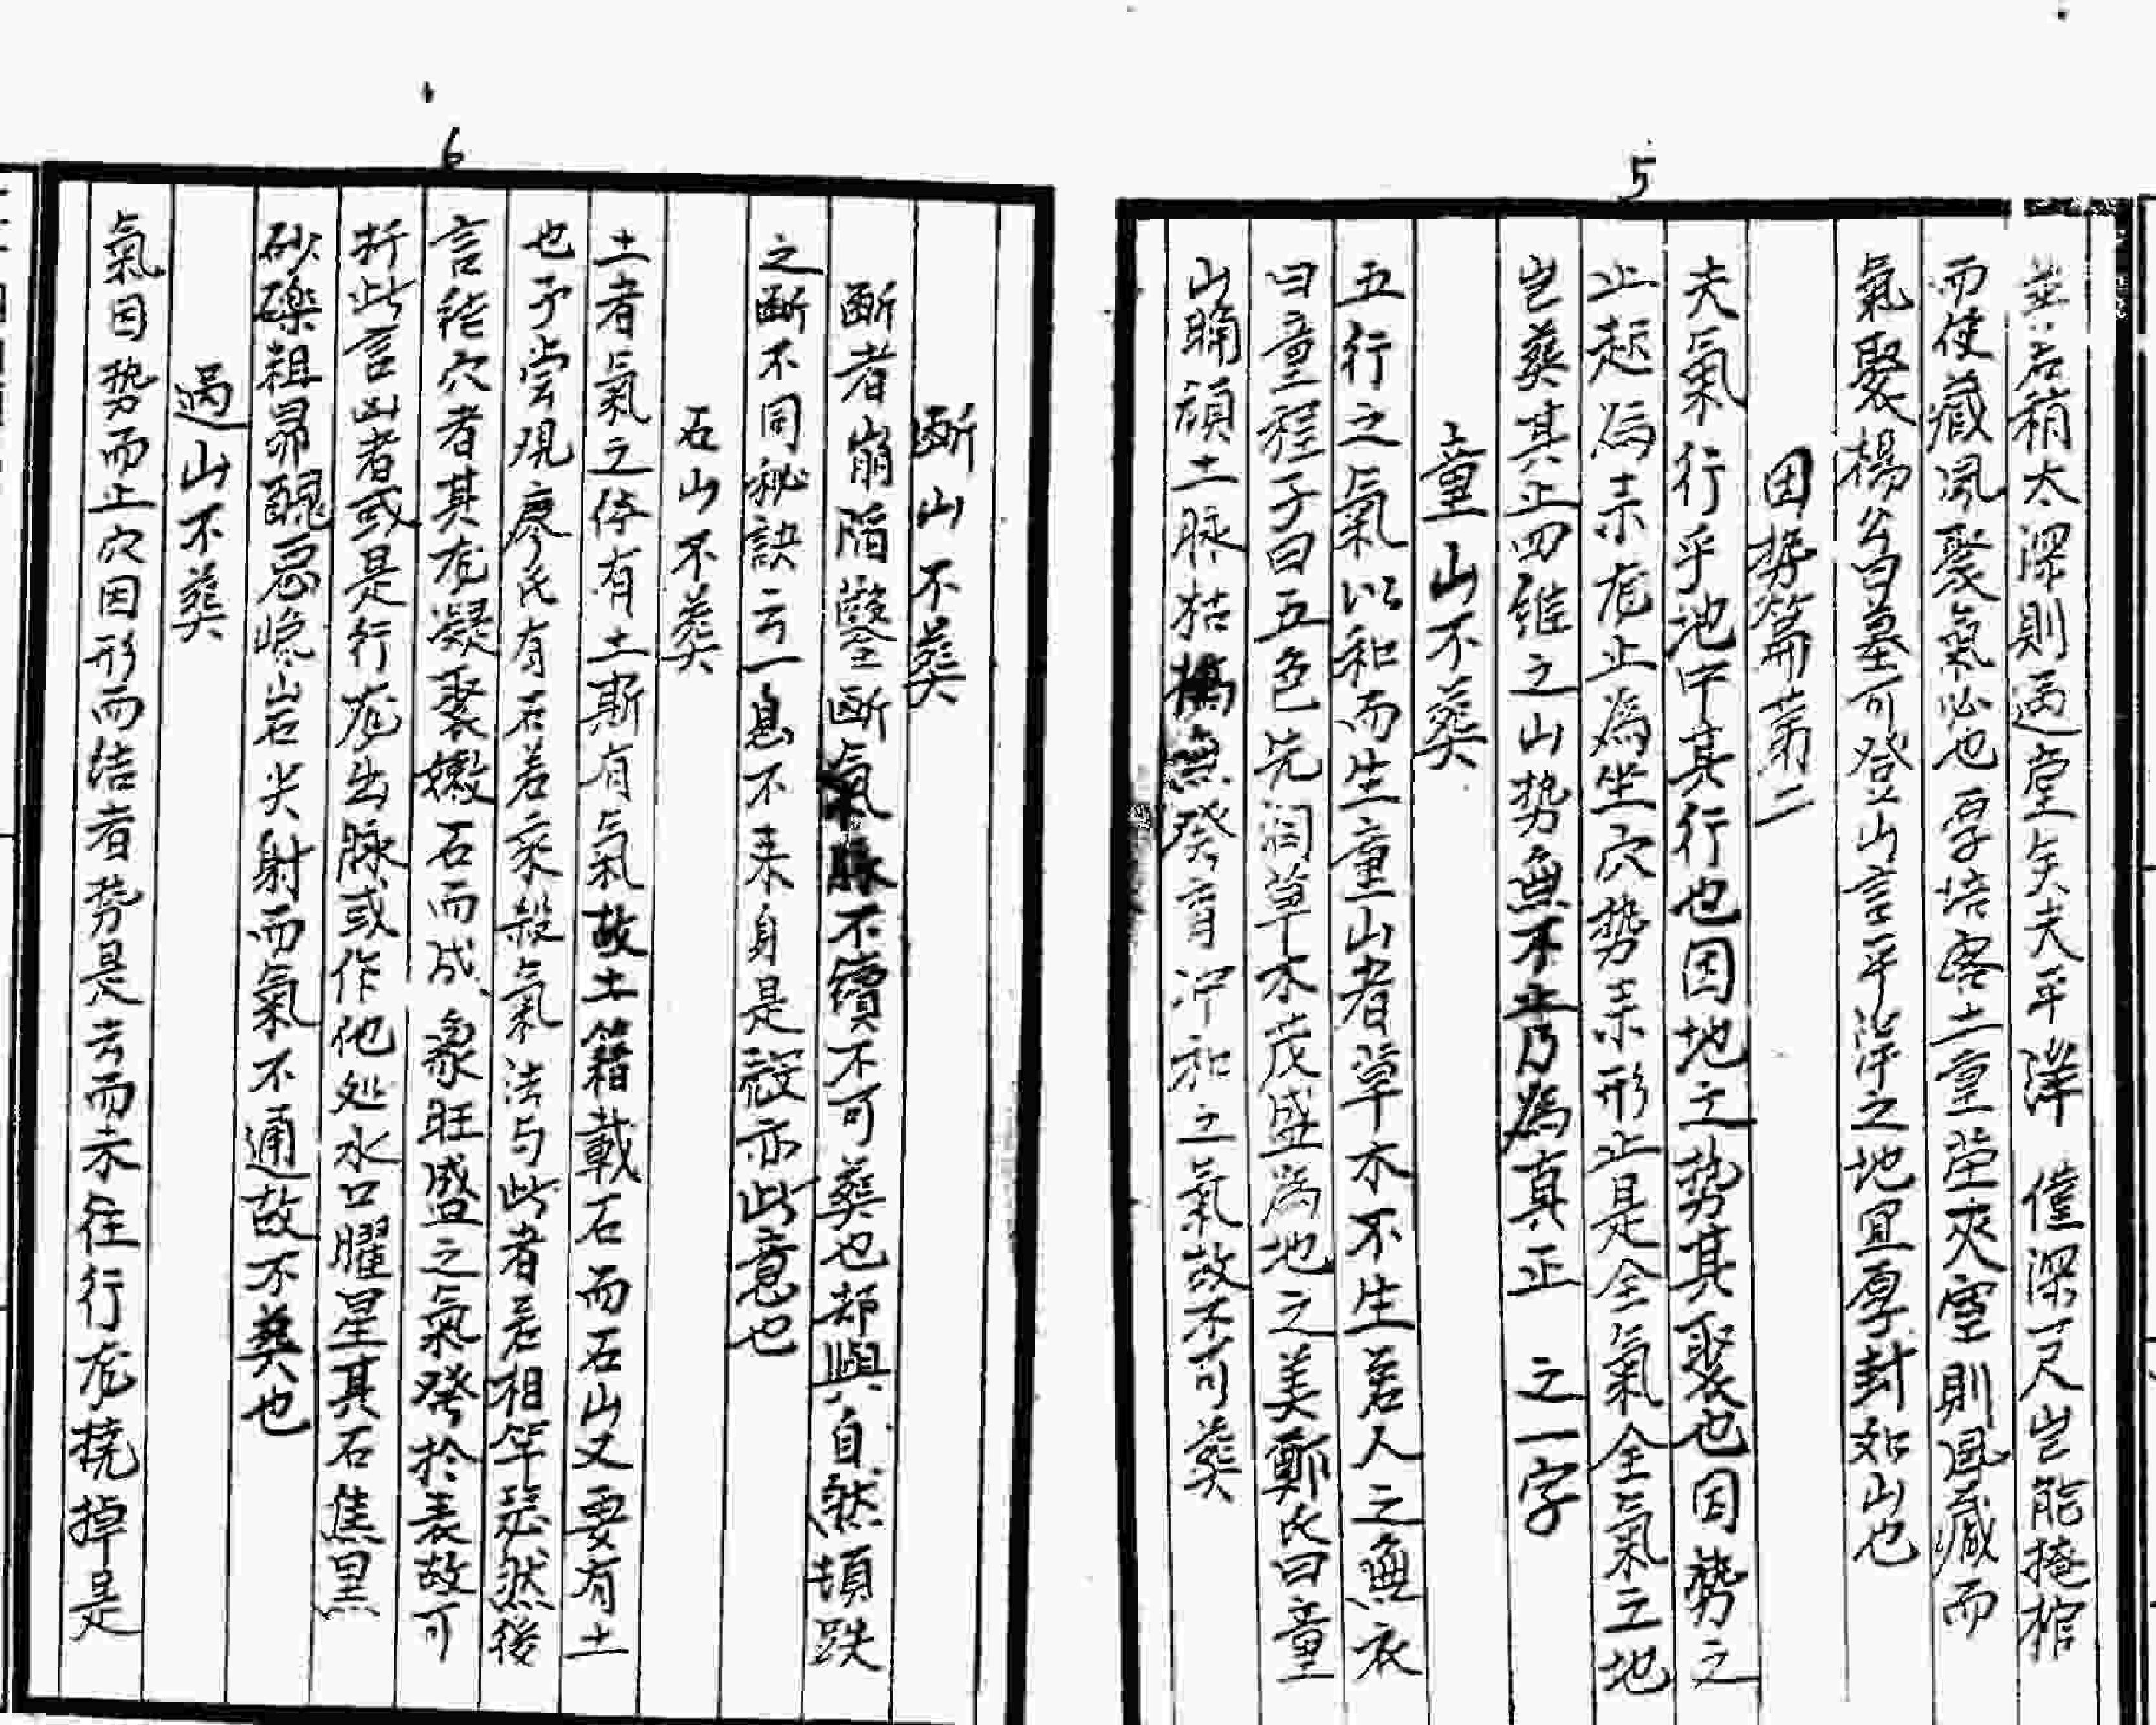 5
並若稍太深則過堂矣夫平洋僅深尺豈能掩棺
而使藏風聚氣必也厚培客土重塋夾室則風藏而
氣聚楊公曰墓可登山言平洋之地宜厚封如山也
因势篇苐二
夫氣行乎地中其行也因地之势其聚也因势之
止起為来龙止為坐穴势来形止是全氣全氣之地
岂葬其止四維之山势無不止乃為真正之一字
童山不葬
五行之氣以和而生童山者草木不生若人之無衣
曰童程子曰五色光润草木茂盛為地之美鄭氏曰童
山頑土脉枯槁無發育冲和之氣故不可葬
6
断山不葬
断者崩陷壑断氣脉不續不可葬也却與自然頓跌
之断不同秘訣云一息不来身是殼亦此意也
石山不葬
土者氣之停有土斯有气故土籍載石而石山又要有土
也予尝观廖氏有石若乘殺氣法与此者若相竿盾然後
言穴者其龙凝聚嫩石而成象旺盛之氣發於表故可
折此言山者或是行龙出脉或作他处水口曜星其石焦黑
砂礫粗昴醜惡巉岩尖射而氣不通故不葬也
過山不葬
氣因势而止穴因形而结者势是去而未住行龙撓掉是